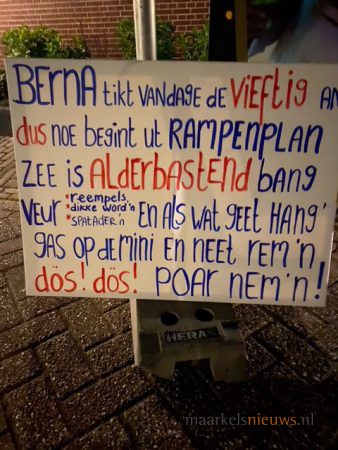 BERNA tikt VANDAGE de VIEFtig AN
dus noe begint ut RAMPENPLAN
ZEE is ALDERBASTEND bang
VEUR *reempels
*dikke word'n
*SPATADER'n EN ALS WAT GEET HANG'
GAS OP de mini EN NEET REM'n
dös! dös! POAR NEM'n!
HERAS
maarkelsnieuws.nl